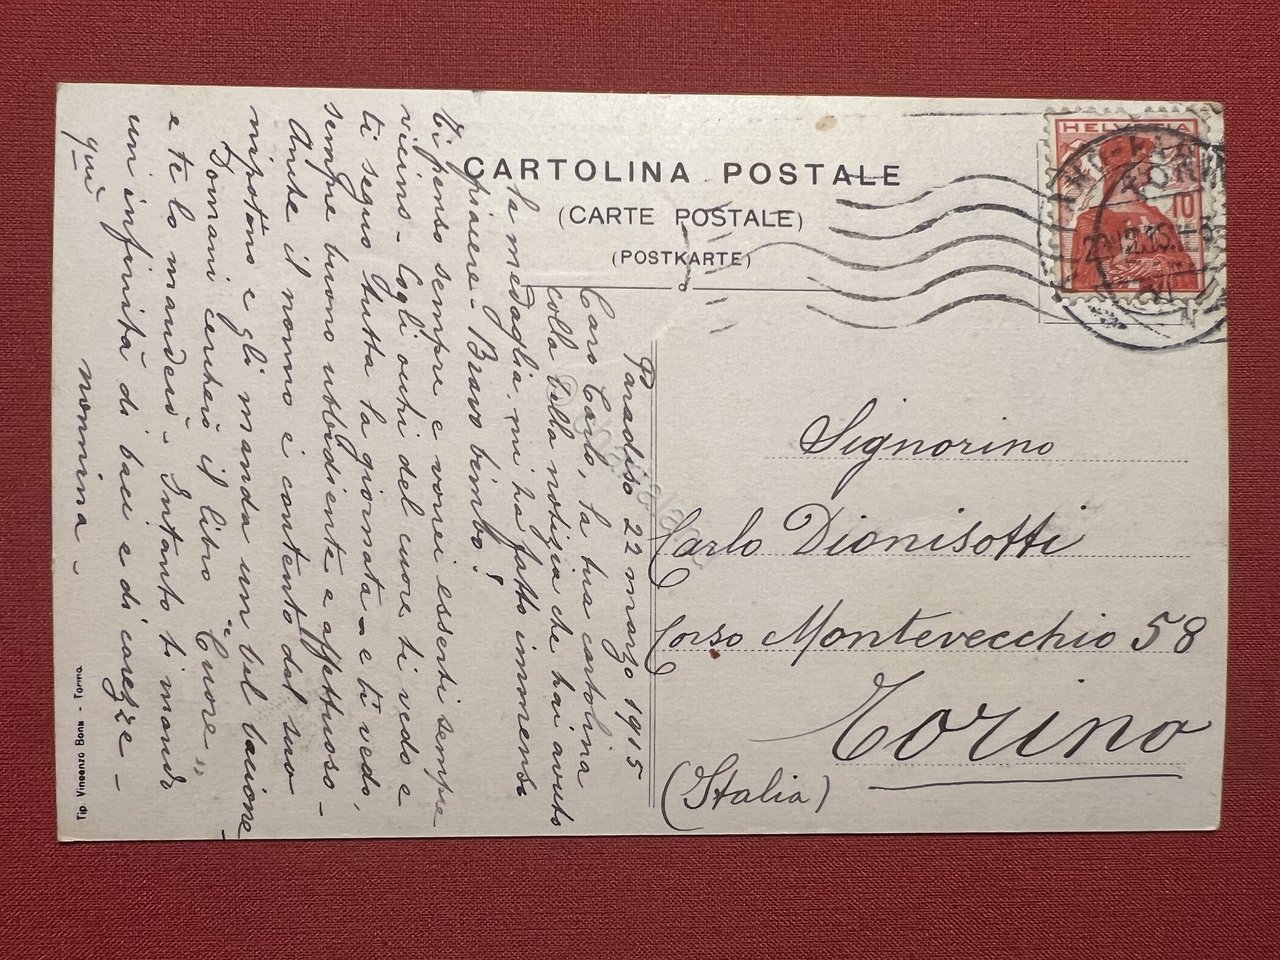 CARTOLINA POSTALE
(CARTE POSTALE)
(POSTKARTE)
HELVETIA
10
Paradiso 22 marzo 1915
Caro Carlo, la tua cartolina
colla bella notizia che hai avuto
la medaglia, mi ha fatto immenso
piacere - Bravo bimbo!
Ti penso sempre e vorrei esserti sempre
vicino - Cogli occhi del cuore ti vedo e
ti seguo tutta la giornata - e ti vedo,
sempre buono ubbidiente e affettuoso -
Anche il nonno è contento del suo
nipotino e gli manda un bel bacione
Domani cercherò il libro "Cuore"
e te lo manderò - Intanto ti mando
un infinità di baci e di carezze -
qui
nonnina -
Signorino
Carlo Dionisotti
Corso Montevecchio 58
Torino
(Italia)
Tip. Vincenzo Bona - Torino